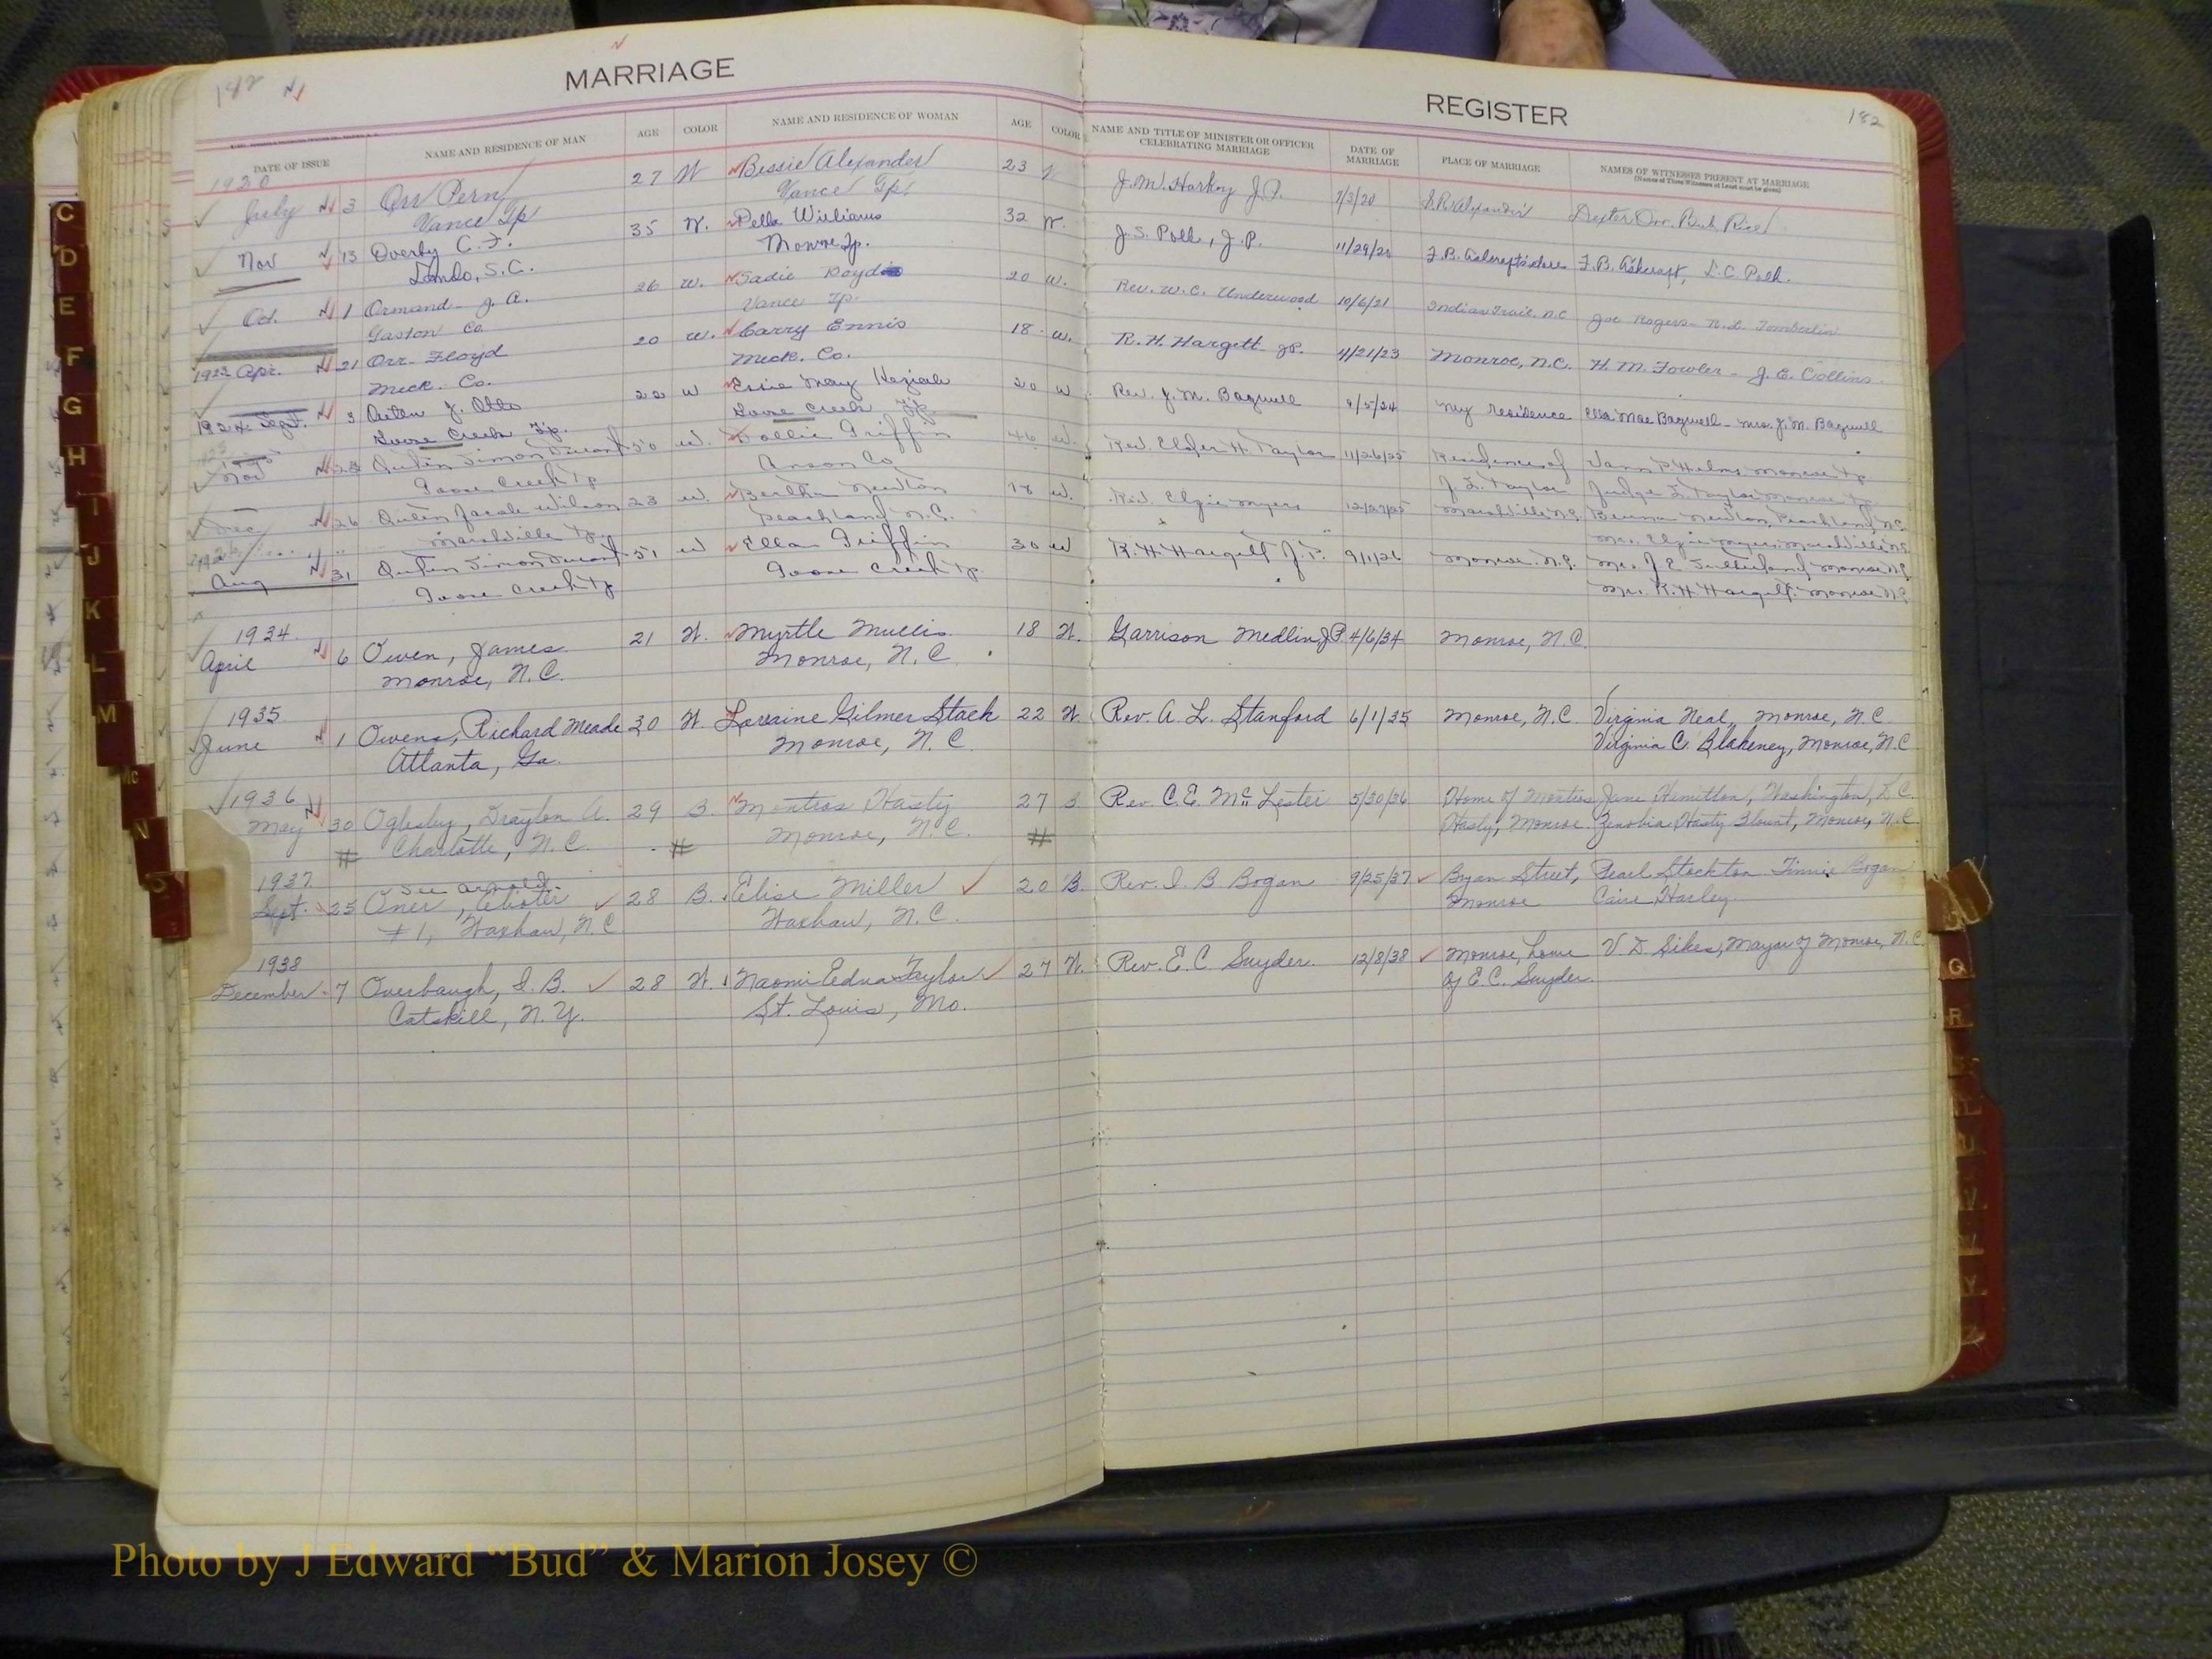 182
MARRIAGE
REGISTER
182
DATE OF ISSUE
NAME AND RESIDENCE OF MAN
AGE
COLOR
NAME AND RESIDENCE OF WOMAN
AGE
COLOR
NAME AND TITLE OF MINISTER OR OFFICER CELEBRATING MARRIAGE
DATE OF MARRIAGE
PLACE OF MARRIAGE
NAMES OF WITNESSES PRESENT AT MARRIAGE
(Names of Three Witnesses at Least must be given)
1920
July 3 Orr Pern 27 W Bessie Alexander 23 J.M. Harkey J.P. 7/3/20 Alexander Dexter Orr. Bub Rice
Vance Tp Vance Tp.
Nov 13 Overby C. F. 35 W. Della Williams 32 W. J. S. Polk, J.P. 11/29/20 F. B. Ashcraft, L. C. Polk.
Lando, S.C. Monroe Tp.
Oct. 1 Ormand J. A. 26 W. Sadie 20 W. Rev. W. C. Underwood 10/6/21 Indian Trail, N.C. Joe Rogers - R. L. Tomberlin
Gaston Co. Vance Tp.
1923 Apr. 21 Orr Floyd 20 W. Carry Ennis 18 W. R. H. Hargett J.P. 4/21/23 Monroe, N.C. H. M. Fowler - J. E. Collins.
Meck. Co. Meck. Co.
1924 Sept. 3 J. Otto 22 W Essie May Keziah 20 W Rev. J. M. Bagwell 9/5/24 My residence Ella Mae Bagwell - Mrs. J. M. Bagwell
Goose Creek Tp. Goose Creek Tp.
Nov 50 W. Dollie Griffin 46 W. Rev. Elder H. Taylor 11/26/25 Residence of Vann P Helms Monroe Tp
Goose Creek Tp Anson Co J. L. Taylor Judge L. Taylor Monroe Tp
Dec 26 Outen Jacob Wilson 23 W. Bertha Newton 18 W. Rev. Elgie Myers 12/27/25 Marshville N.C. Newton, Peachland, N.C.
Marshville Tp. Peachland, N.C. Mrs. Elgie Myers, Marshville N.C.
Aug 31 51 W Ella Griffin 30 W R. H. Hargett J. P. 9/1/26 Monroe, N.C. Mrs. J E Sutherland Monroe N.C.
Goose Creek Tp Goose Creek Tp. Mrs. R. H. Hargett. Monroe N.C.
1934
April 6 Owen, James 21 W. Myrtle Mullis 18 W. Garrison Medlin JP 4/6/34 Monroe, N.C.
Monroe, N.C. Monroe, N.C.
1935
June 1 Owens, Richard Meade 30 W. Lorraine Gilmer Stack 22 W. Rev. A. L. Stanford 6/1/35 Monroe, N.C. Virginia Neal, Monroe, N.C.
Atlanta, Ga. Monroe, N.C. Virginia C. Blakeney, Monroe, N.C.
1936
May 30 Oglesby, Drayton A. 29 B. Montros Hasty 27 B Rev. C. E. McLester 5/30/36 Home of Jane Hamilton, Washington, D.C.
# Charlotte, N.C. # Monroe, N.C. # Hasty, Monroe. Zenobia Hasty Blount, Monroe, N.C.
1937 See Arnold
Sept. 25 Oner, 28 B. Elise Miller 20 B. Rev. I. B Bogan 9/25/37 Bryan Street, Pearl Stockton Bogan
#1, Waxhaw, N.C. Waxhaw, N.C. Monroe
1938
December 7 Overbaugh, I. B. 28 W. Naomi Edna Taylor 27 W. Rev. E. C. Snyder. 12/8/38 Monroe, Home V. D. Sikes, Mayor of Monroe, N.C.
Catskill, N.Y. St. Louis, Mo. of E. C. Snyder.
C
D
E
F
G
H
I
J
K
L
M
Mc
N
O
Q
R
Photo by J Edward “Bud” & Marion Josey ©